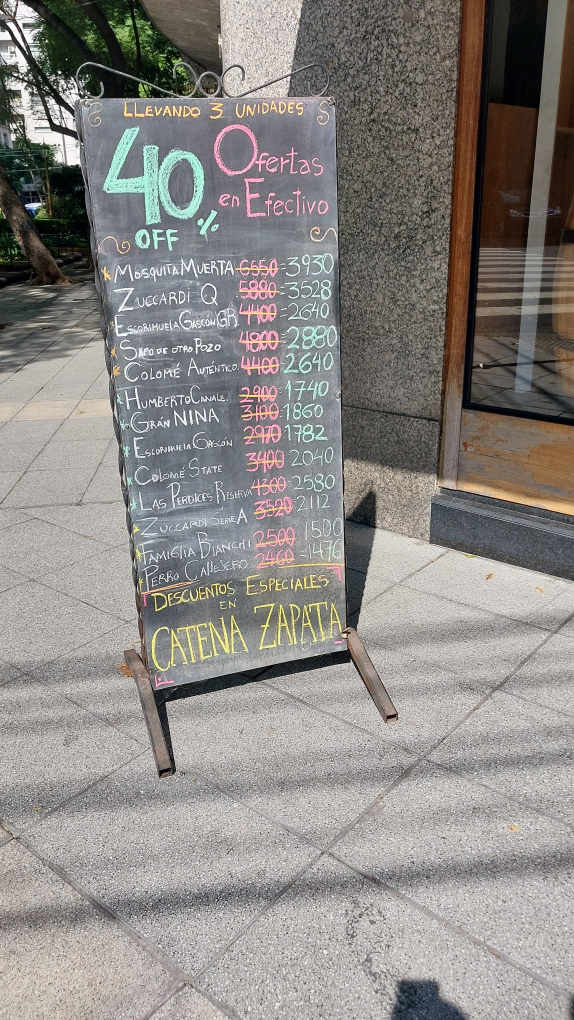 LLEVANDO 3 UNIDADES
40% OFF
Ofertas
en Efectivo
MOSQUITA MUERTA 6550-3930
ZUCCARDI Q 5880-3528
ESCORIHUELA GASCON GR 4400-2640
SAPO DE OTRO POZO 4800-2880
COLOMÉ AUTENTICO. 4400-2640
HUMBERTO CANALE. 2900-1740
GRAN NINA 3100-1860
ESCORIHUELA GASCÓN 2970-1782
COLOMÉ STATE 3400-2040
LAS PERDICES RESERVA 4300-2580
ZUCCARDI SERIE A 3520-2112
FAMIGLIA BIANCHI 2500-1500
PERRO CALLEJERO 2460-1476
DESCUENTOS ESPECIALES
EN
CATENA ZAPATA